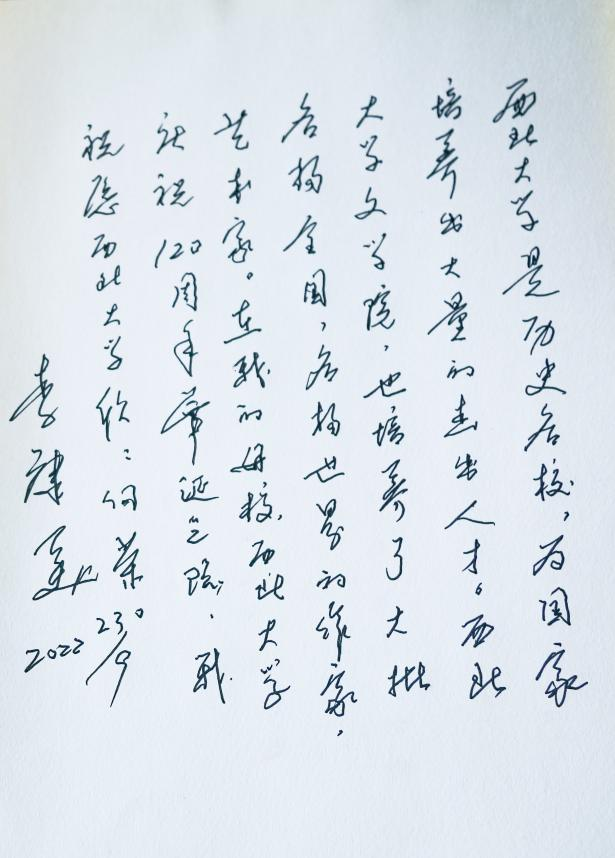 西北大学是历史名校，为国家
培养出大量的杰出人才。西北
大学文学院，也培养了大批
名扬全国，名扬世界的作家，
艺术家。在我的母校，西北大学
庆祝120周年华诞之际，我
祝愿西北大学欣欣向荣。
李康美
2022 23/9